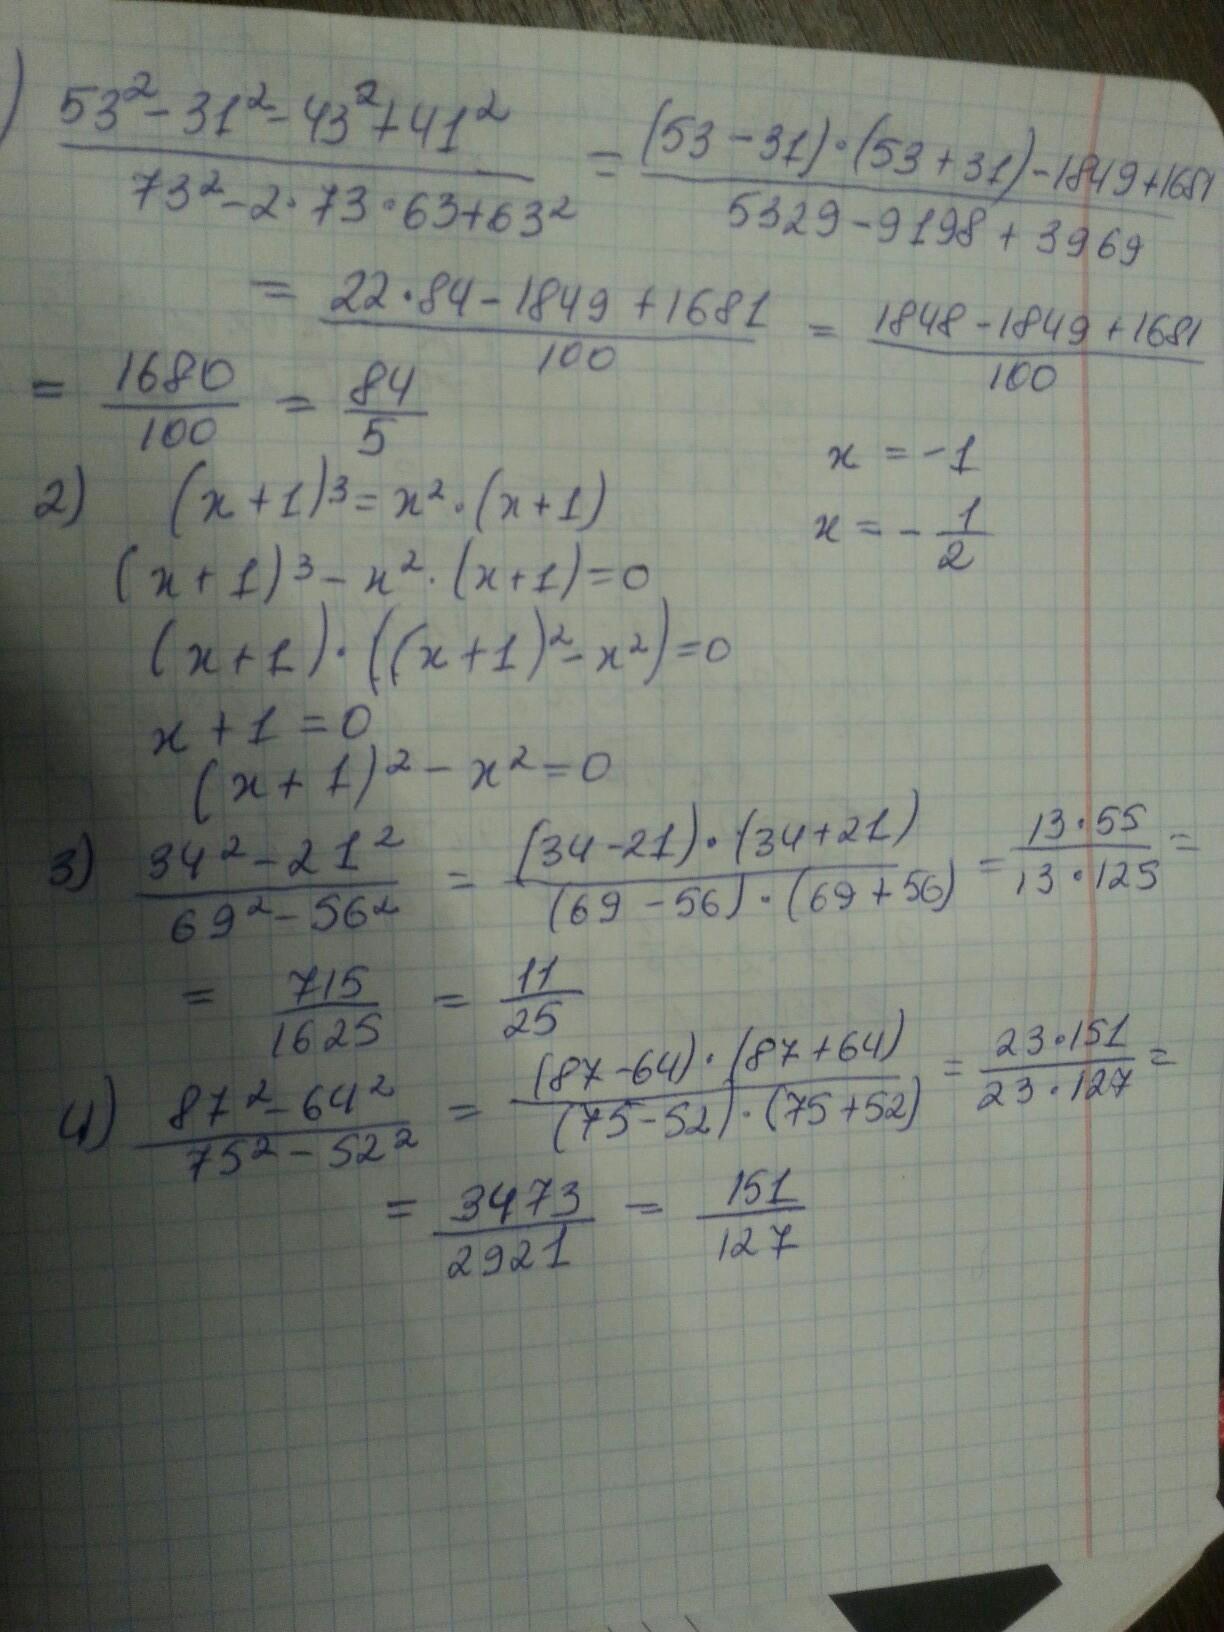 ) (53² - 31² - 43² + 41²) / (73² - 2 · 73 · 63 + 63²) = ((53 - 31) · (53 + 31) - 1849 + 1681) / (5329 - 9198 + 3969)
= (22 · 84 - 1849 + 1681) / 100 = (1848 - 1849 + 1681) / 100
= 1680 / 100 = 84 / 5
x = -1
x = - 1/2
2) (x + 1)³ = x² · (x + 1)
(x + 1)³ - x² · (x + 1) = 0
(x + 1) · ((x + 1)² - x²) = 0
x + 1 = 0
(x + 1)² - x² = 0
3) (34² - 21²) / (69² - 56²) = ((34 - 21) · (34 + 21)) / ((69 - 56) · (69 + 56)) = (13 · 55) / (13 · 125) =
= 715 / 1625 = 11 / 25
4) (87² - 64²) / (75² - 52²) = ((87 - 64) · (87 + 64)) / ((75 - 52) · (75 + 52)) = (23 · 151) / (23 · 127) =
= 3473 / 2921 = 151 / 127